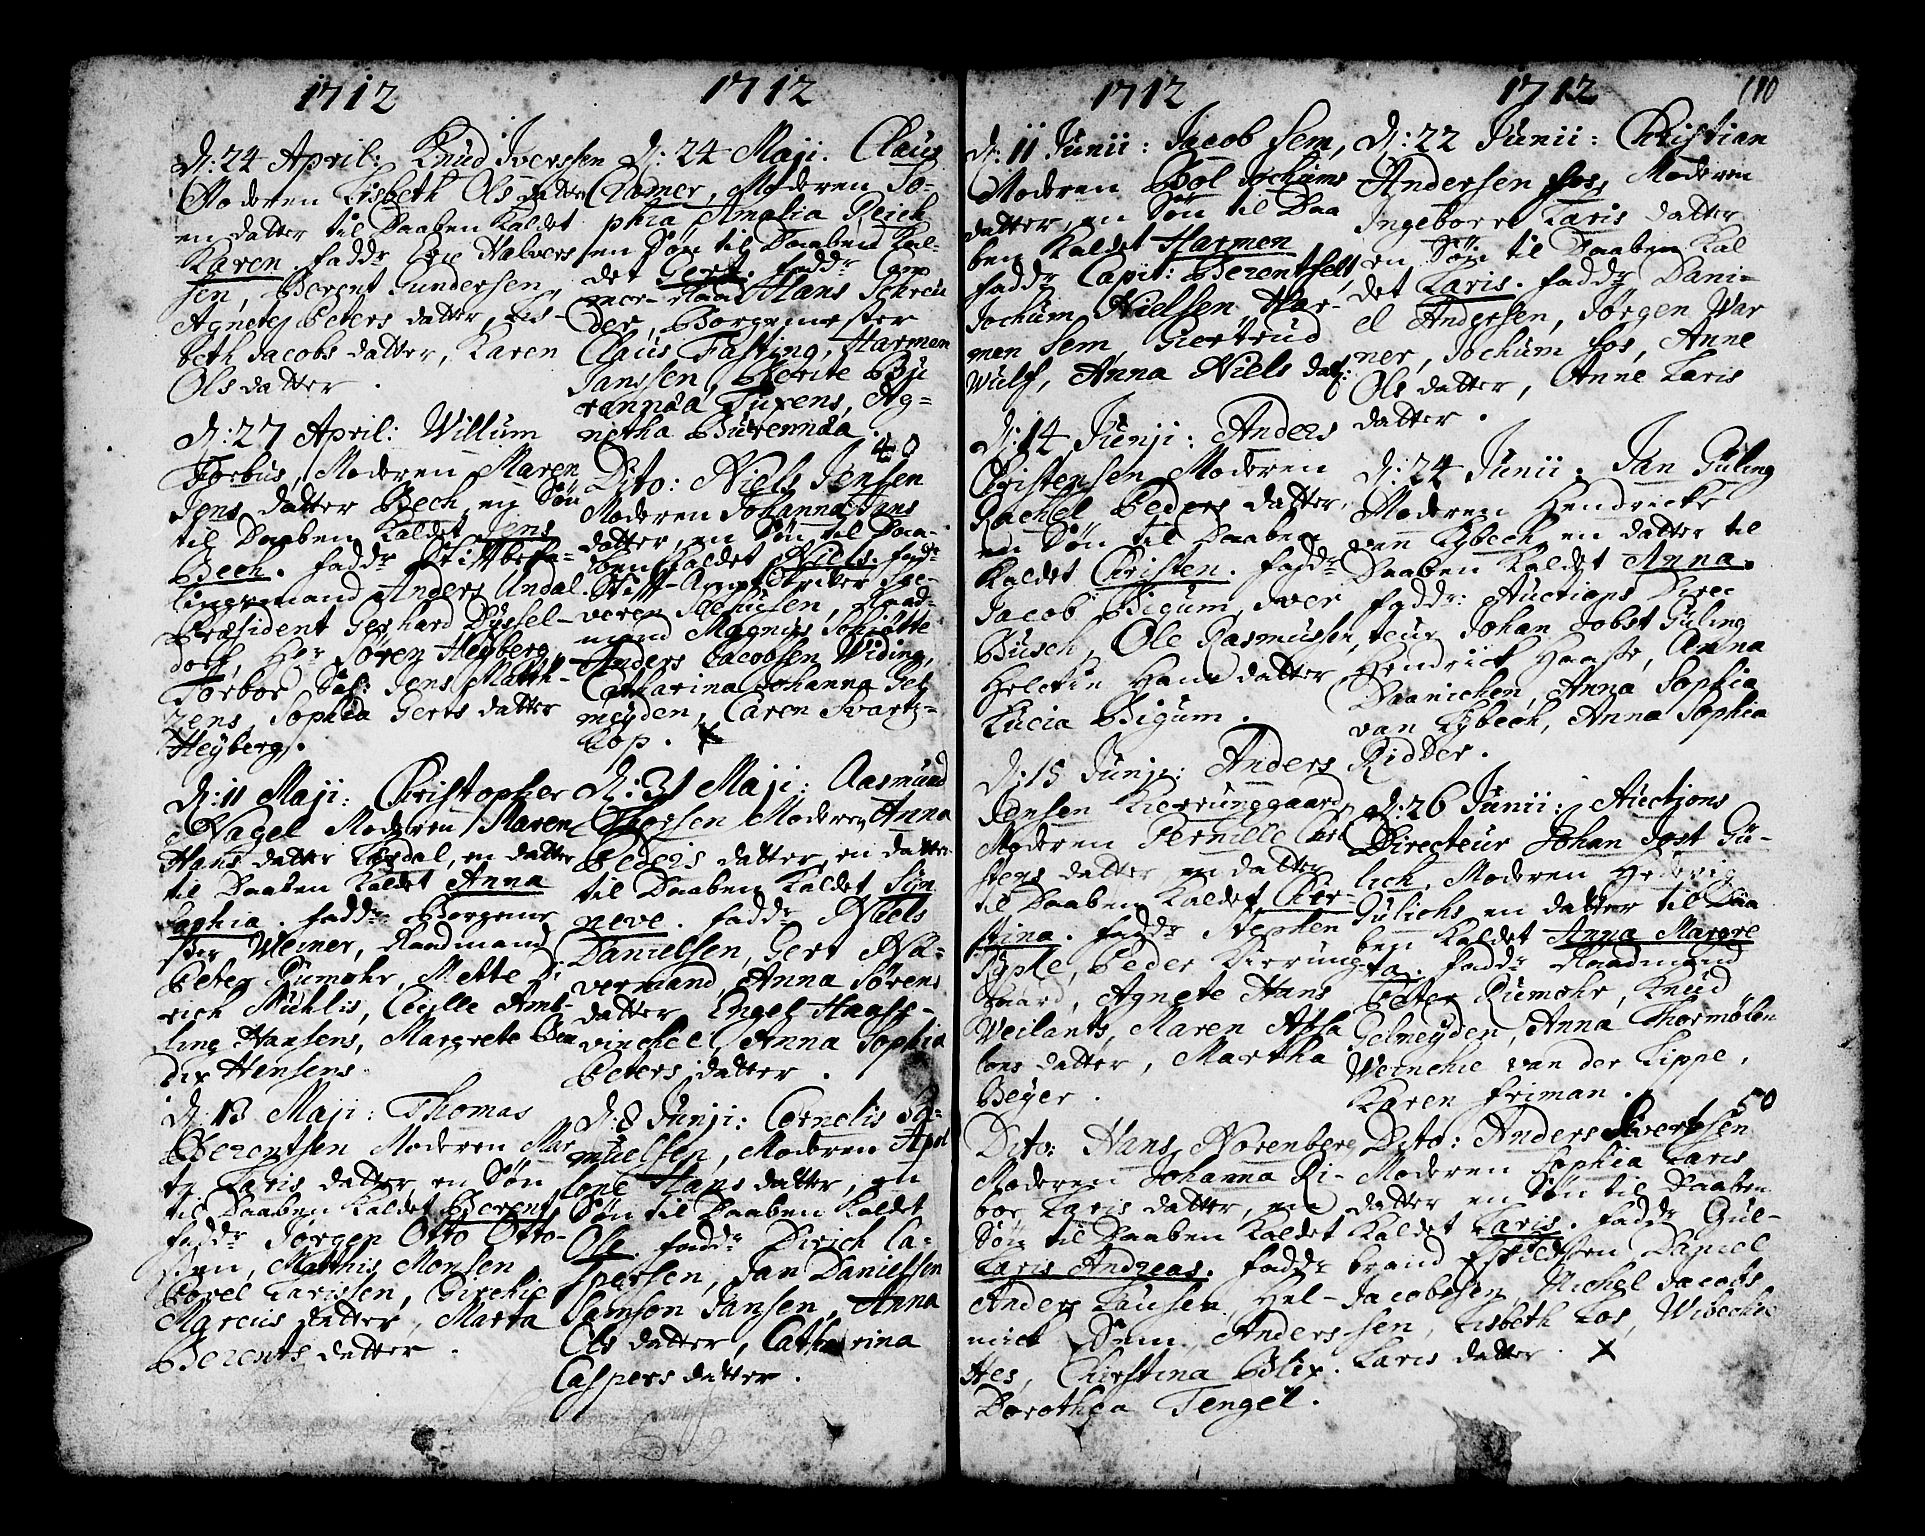 1712
D: 24 April: Knud Iverssen
Moderen Lisbeth Ols datter
en datter til Daaben Kaldet
Karen. fadd: Eric Halvers
sen, Berent Gundersen,
Agnetes Peters datter, Lis-
beth Jacobs datter, Karen
Ols datter.
D: 27 April: Willum
Forbus, Moderen Maren
Jens datter Bech, en Søn
til Daaben Kaldet Jens
Bech. fadd: Stiftbefa-
lingsmand Anders Undal.
Præsident Gerhard Dyssel-
dorf, Hr Søren Heyberg,
Forboe, Sal: Jens Matth-
zens, Sophia Gerts datter
Heyberg.
D: 11 Maji: Christopher
Nagel Moderen Maren
Hans datter Lerdal, en datter
til Daaben Kaldet Anna
Sophia. fadd: Borgeme
ster Weiner, Raadmand
Peter Rumohr, Mette Di
rich Muhlis, Cecille Amb-
ling Hansens, Margrete Ben
dix Hensens
D: 13 Maji: Thomas
Berentsen Moderen Mar
te Laris datter en Søn
til Daaben Kaldet Berent
fadd: Jørgen Otto Otto-
sen, Matthis Monsen
Povel Larissen, Girchie
Marcus datter, Marta
Berents datter.
1712
D: 24 Maji. Claus
Cramer, Moderen So-
phia Amalia Reich
en Søn til Daaben Kal-
det Gert. fadd: Cam
mer-Raad Hans Schreu
der, Borgemester
Claus Fasting, Harmen
Janssen, Berite Bu
rennaa Tuxens, Ag-
netha Burennaa.
40
Dito: Niels Jensen
Moderen Johanna Jans
datter, en Søn til Daa-
ben Kaldet Niels. fadd:
Stift-Ampt skriver
veren Seehusen, Raad-
mand Magnus Schiøtte
Anders Jacobsen Widing,
Catharina Johanna Gel
meyden, Caren Svartz-
kop. X
D: 31 Maji: Aasmund
Thorsen Moderen Anna
Peders datter, en datter
til Daaben Kaldet Syn
neve. fadd: Niels
Danielsen, Gert Na-
vermand, Anna Sørens
datter, Engel Haasse-
vinchel, Anna Sophia
Peters datter.
D: 8 Junji: Cornelis Sa-
muelsen, Moderen Apel
lone Hans datter, en
Søn til Daaben Kaldet
Ole. fadd: Dirich Ca-
spersen, Jan Danielsen
Samson Jansen, Anna
Ols datter, Catharina
Caspers datter.
1712
D: 11 Junii: Jacob Sem,
Moderen Bol Jochums
datter, en Søn til Daa
ben Kaldet Harmen
fadd: Capit: Berentfelt,
Jochum Nielsen Har-
men Sem, Giertrud
Wulf, Anna Niels datt:
D: 14 Junji: Anders
Christensen, Moderen
Rachel Peders datter,
en Søn til Daaben
Kaldet Christen. fadd:
Jacob Bigum, Iver
Busch, Ole Rasmussen,
Helctie Hans datter
Lucia Bigum.
D: 15 Junji: Anders
Jensen Kierrunggaard,
Moderen Pernille Chri
stens datter en datter
til Daaben Kaldet Chir-
stina. fadd: Stephen
Syple, Peder Kierung-
gaard, Agnete Hans
Veilants, Maren Absa
lons datter, Martha
Beyer.
Dito: Hans Norenberg
Moderen Johanna Ri-
boe Laris datter, en
Søn til Daaben Kaldet
Laris Andreas. fadd:
Anders Lausen, Hel-
mich Dum, Anders
Hes, Chirstina Blix.
Dorothea Tengel.
1712
110
D: 22 Junii: Christian
Andersen Fos, Moderen
Ingeborre Laris datter
en Søn til Daaben Kal
det Laris. fadd: Dani-
el Andersen, Jørgen War
ner, Jochum Fos, Anne
Ols datter, Anne Laris
datter.
D: 24 Junii. Jan Guling
Moderen Hendricke
van Lybech en datter til
Daaben Kaldet Anna.
fadd: Auctions Direc
teur Johan Jobst Guling
Hendrick Haasse, Anna
Daanichen, Anna Sophia
van Lybech, Anna Sophia
Ridder.
D: 26 Junii: Auctions
Directeur Johan Jost Gu-
lich, Moderen Hedevig
Gulichs en datter til Daa
ben Kaldet Anna Margre
ta. fadd: Raadmand
Peter Rumohr, Knud
Gelmeyden, Anna Thormølen
Wernchie van der Lippe,
Karen Friman.
50
Dito: Anders Sivertsen
Moderen Sophia Laris
datter en Søn til Daaben
Kaldet Laris. fadd: Gul-
brand Eskildsen, Daniel
Jacobsen, Michel Jacobs
sen, Lisbeth Los, Wibechie
Laris datter. X